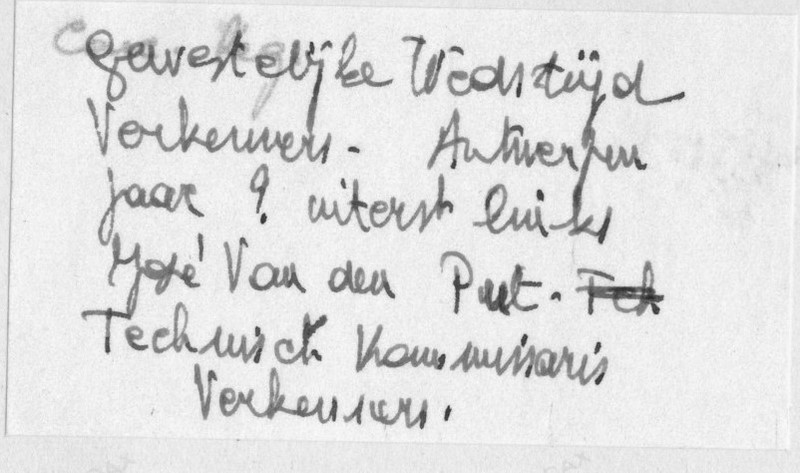 Gewestelijke Wedstrijd
Verkenners - Antwerpen
jaar ? uiterst links
José Van den Put.
Technisch Kommissaris
Verkenners.